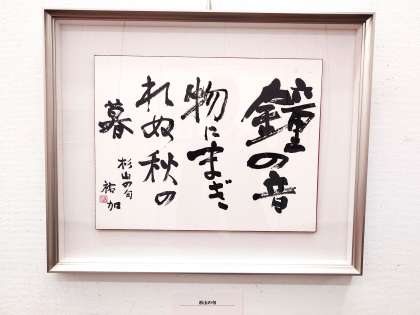 鐘の音
物にまぎ
れぬ秋の
暮
杉山の句
祐加
杉山の句